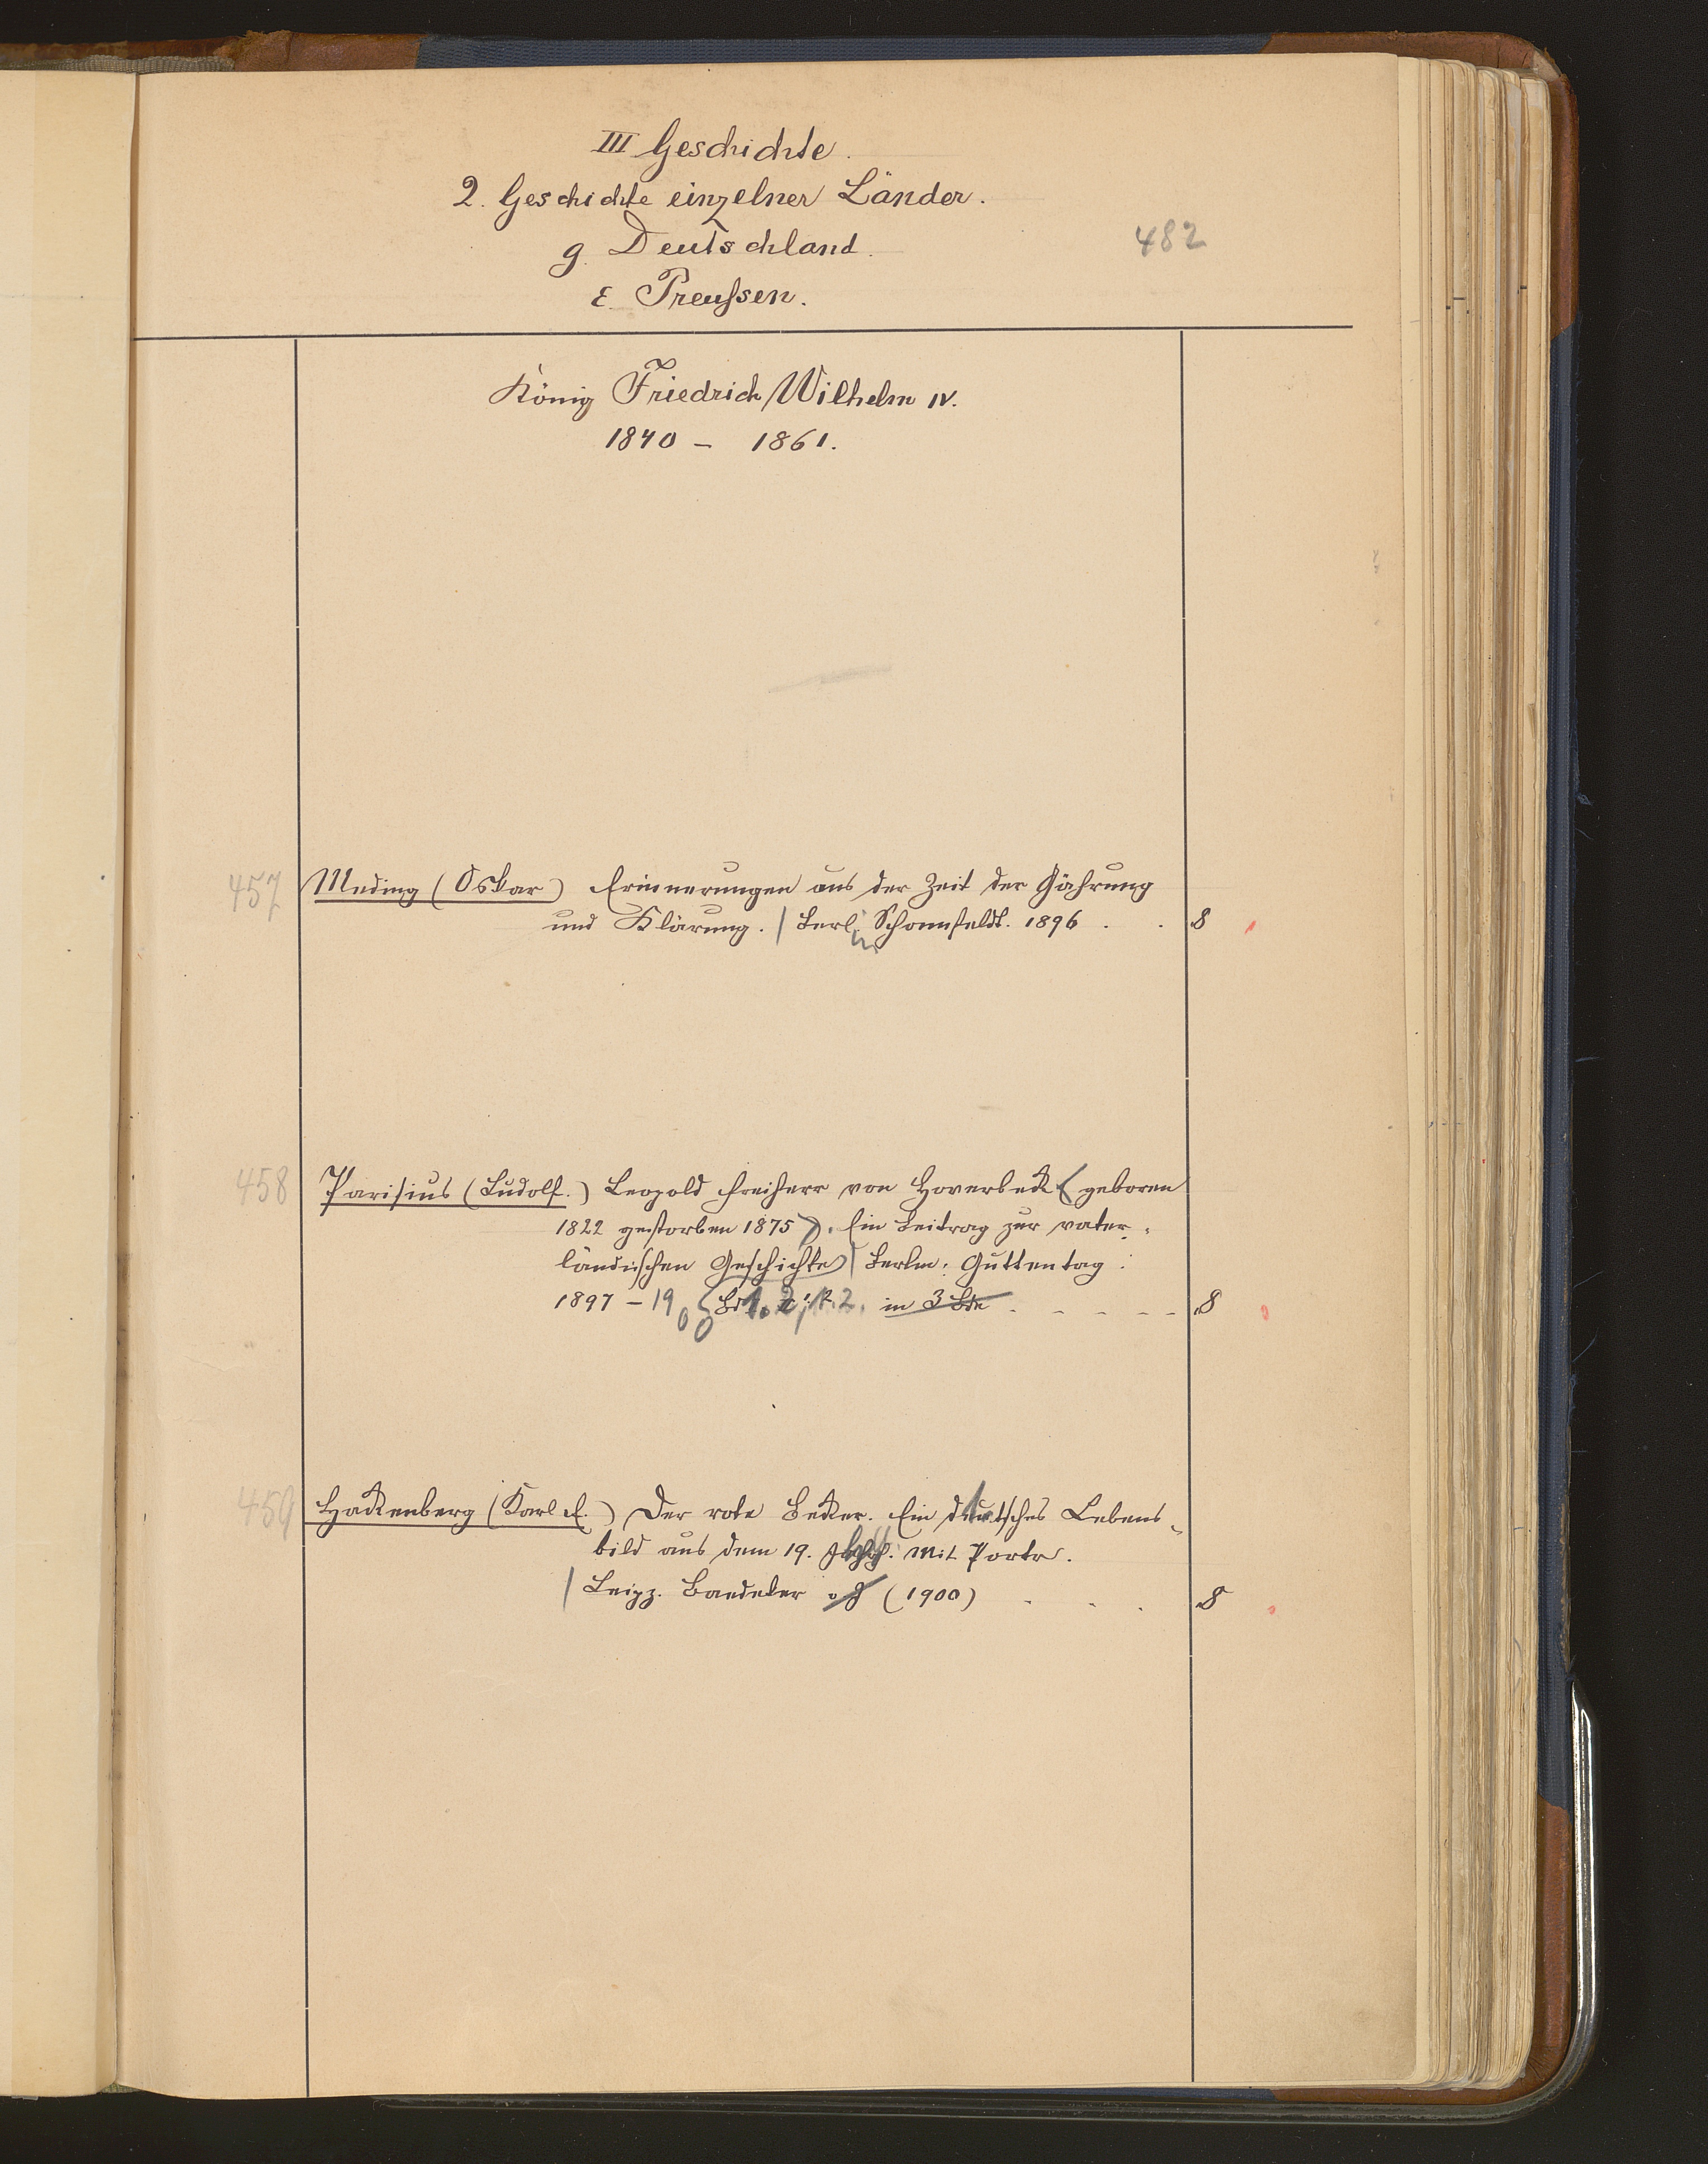 III Geschichte.
2. Geschichte einzelner Länder.
g. Deutschland.
482
ε. Preußen.
König Friedrich Wilhelm IV.
1840 – 1861.
457 Meding (Oskar) Erinnerungen aus der Zeit der Gährung
und Klärung. | Berlin Schonnfeldt. 1896 . . 8
458 Parisius (Ludolf.) Leopold Freiherr von Hoverbeck (geboren
1822 gestorben 1875). Ein Beitrag zur vater-
ländischen Geschichte | Berlin: Guttentag
1897 – 1900 Bd 1. 2, 1. 2. in 3 Bde . - - - - 8
459 Hackenberg (Karl E.) Der rote Becker. Ein deutsches Lebens-
bild aus dem 19. Mit Portr.
| Leipz. Baedeker (1900) . . . 8